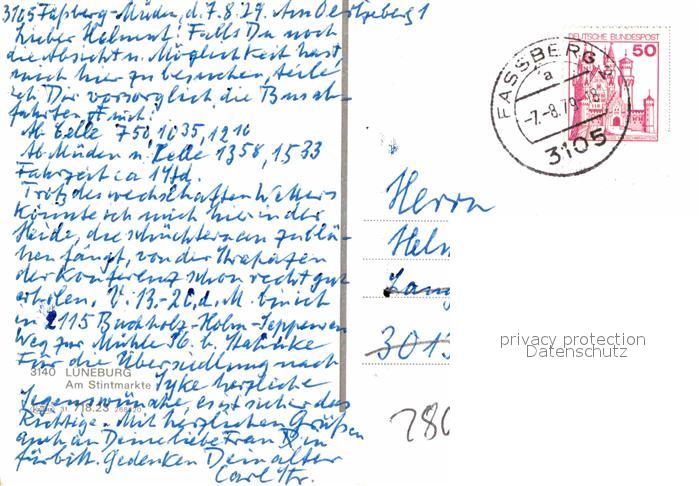 3105 Faßberg-Müden, d. 7.8.79. Am Oertzeberg 1
Lieber Helmut! Falls Du noch
die Absicht u. Möglichkeit hast,
mich hier zu besuchen, teile
ich Dir vorsorglich die Busab-
fahrten mit:
Ab Celle 750, 1035, 1210
Ab Müden n. Celle 1358, 1533
Fahrzeit ca 1 Std.
Trotz des wechselhaften Wetters
konnte ich mich hier in der
Heide, die schüchtern an zu blü-
hen fängt, von der Strapazen
der Konferenz schon recht gut
erholen. V. 13.-26. d. M. bin ich
in 2115 Buchholz-Holm-Seppensen
Weg zur Mühle 16 b.
Für die Übersiedlung nach
3140 LÜNEBURG
Am Stintmarkte
Syke herzliche
Segenswünsche, es ist sicher das
Richtige. Mit herzlichen Grüßen
auch an Deine liebe Frau u. in
fürbitt. Gedenken Dein alter
Carl Str.
DEUTSCHE BUNDESPOST
50
FASSBERG
a
-7.-8.79-18
3105
Herrn
Helm
Lang
3013
280
privacy protection
Datenschutz